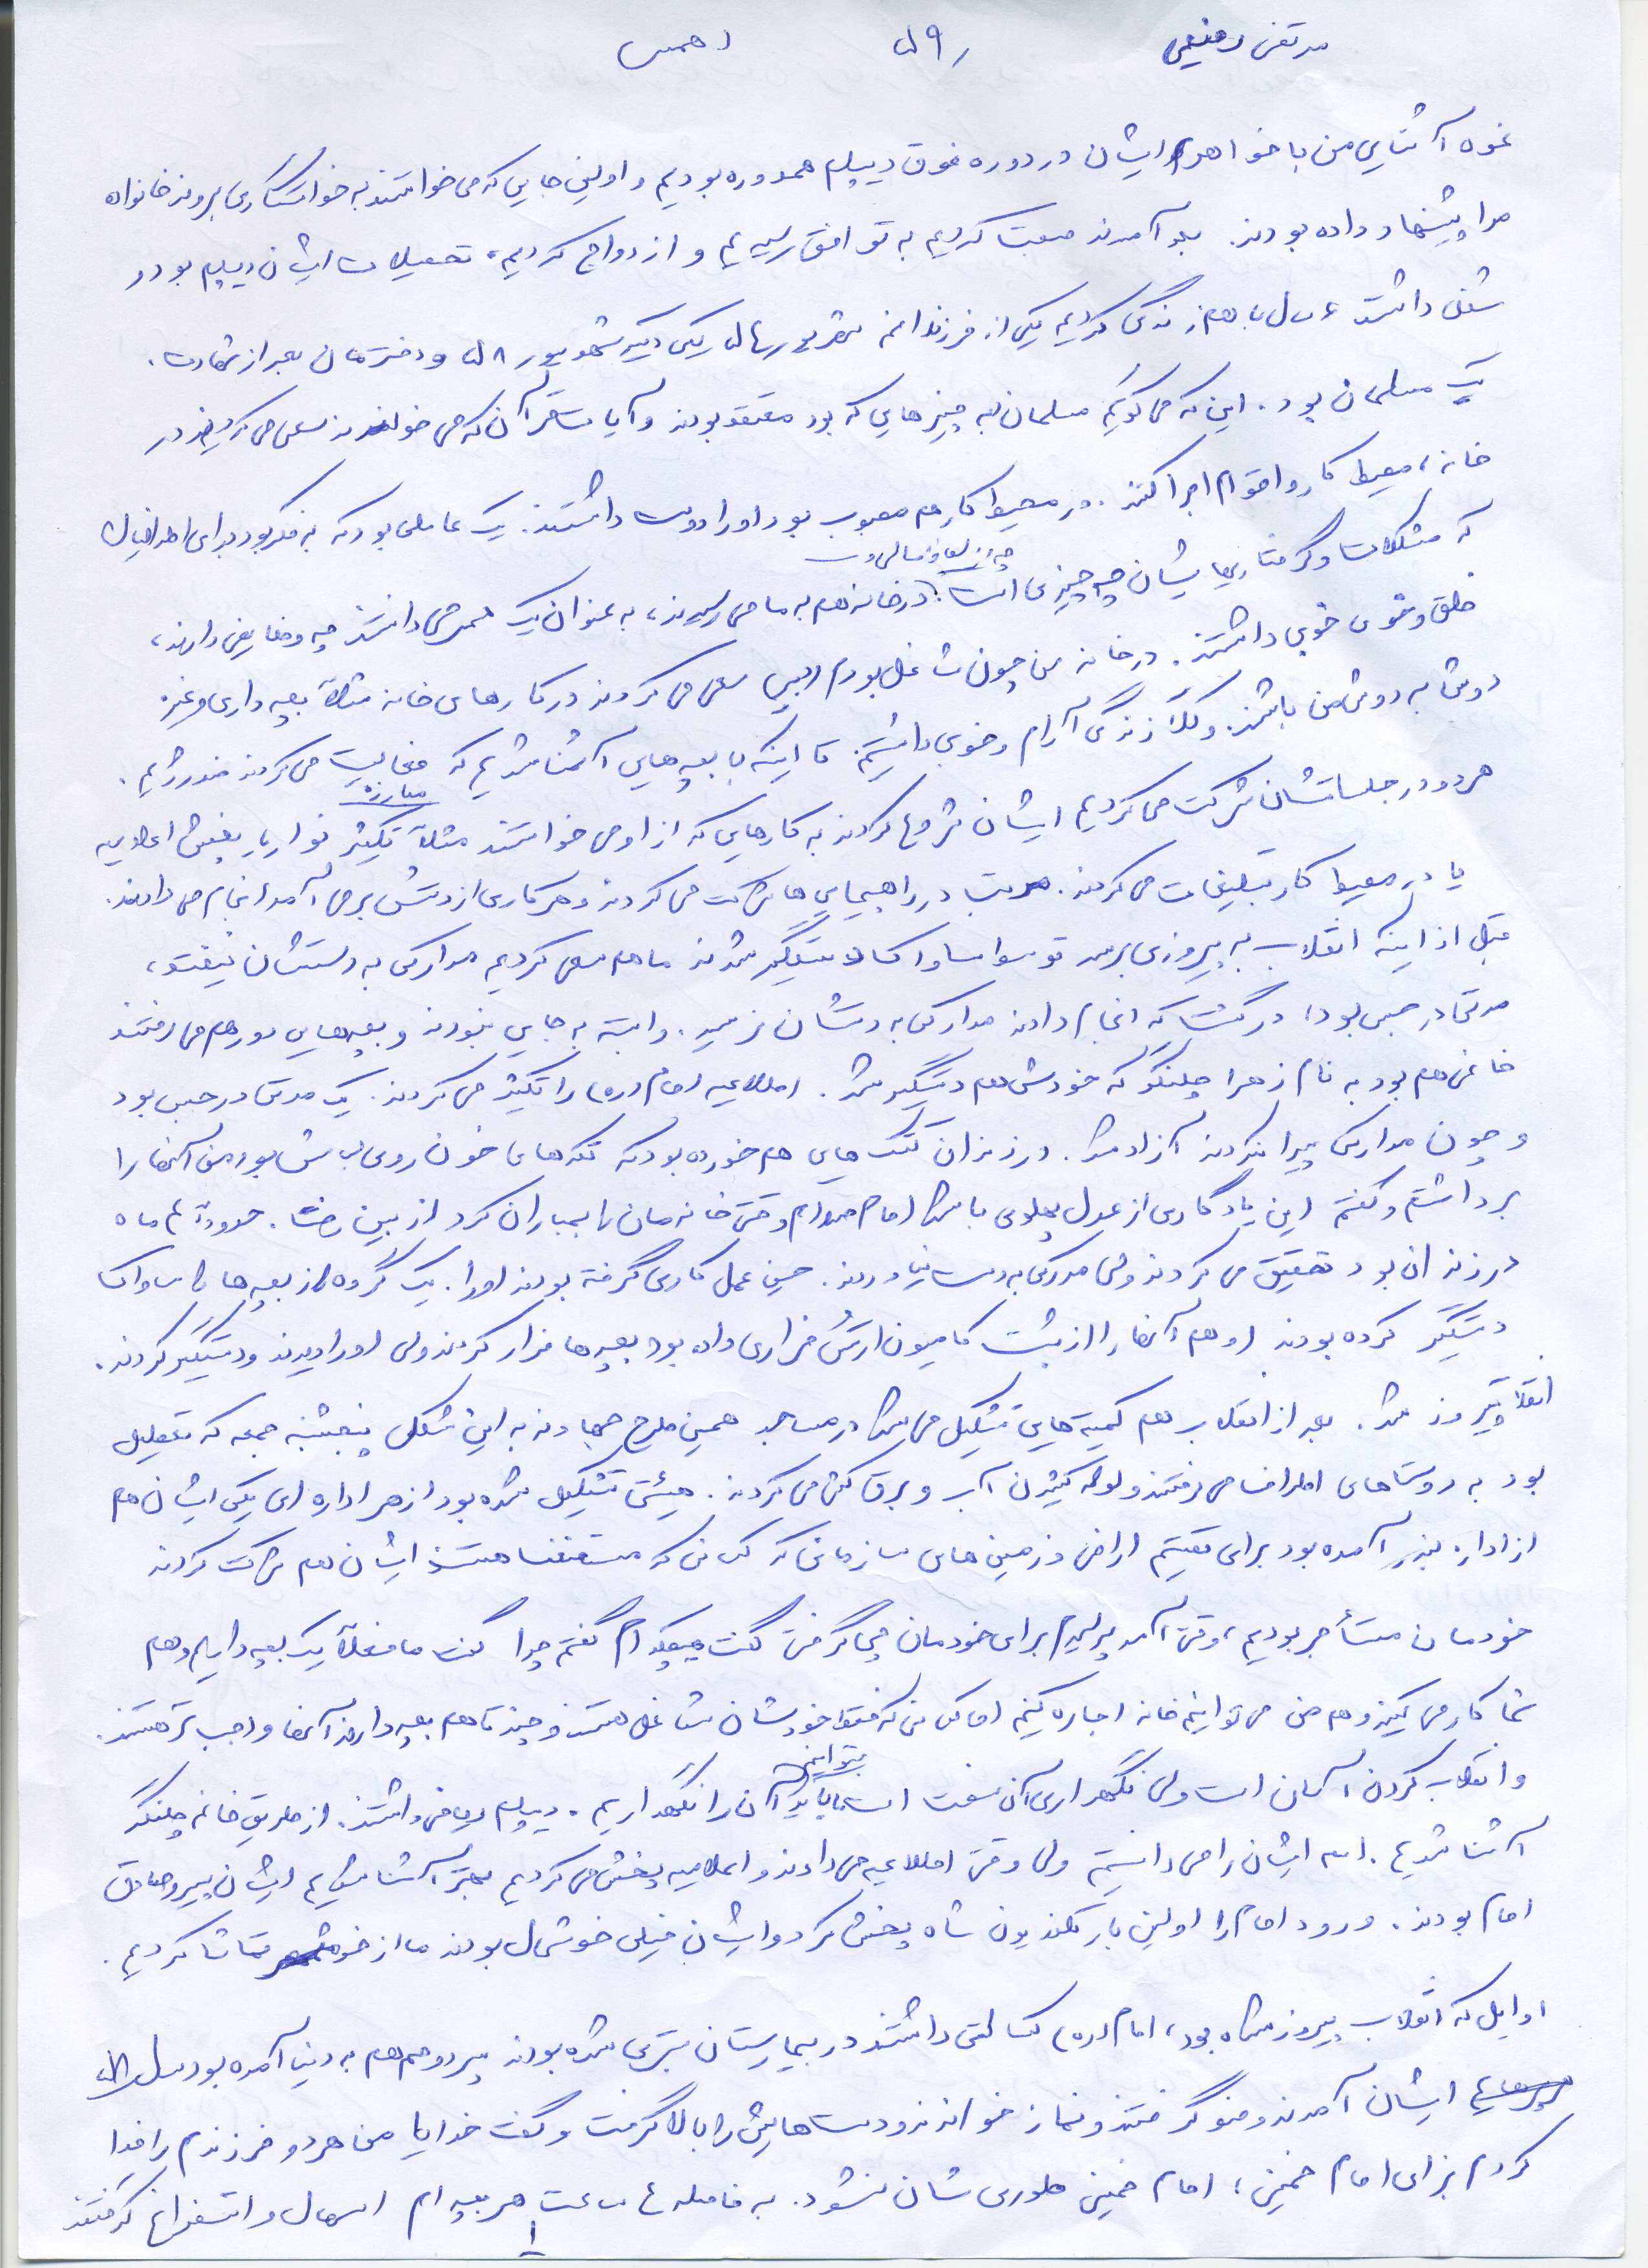 مرتضی رفیعی ۵۹ ر همسر
نحوه آشنایی من با خواهر ایشان در دوره فوق دیپلم همدوره بودیم و اولین جایی که می خواستند به خواستگاری بروند خانواده
مرا پیشنهاد داده بودند. بعد آمدند صحبت کردیم به توافق رسیدیم و ازدواج کردیم، تحصیلات ایشان دیپلم بود و
شغل داشت ۶ سال با هم زندگی کردیم یکی از فرزندانم یکی دیگر شهریور ۵۸ و دخترمان بعد از شهادت.
یک مسلمان بود. این که می گویم مسلمان به چیزهایی که بود معتقد بودند و آیات قرآن که می خواندند سعی می کردند در
خانه، محیط کار و اقوام اجرا کنند. در محیط کار هم محبوب بود او را دوست داشتند. یک عاملی بود که به فکر بود برای اطرافیان
که مشکلات و گرفتاریهایشان چه چیزی است چه از لحاظ مالی و در خانه هم به ما می رسیدند، به عنوان یک همسر می دانستند چه وظایفی دارند،
خلق و خوی خوبی داشتند. در خانه من چون شاغل بودم سعی می کردند در کارهای خانه مثلاً بچه داری و غیره
دوش به دوش من باشند. و کلاً زندگی آرام و خوبی داشتیم تا اینکه با بچه هایی آشنا شدیم که فعالیت می کردند
هر دو در جلساتشان شرکت می کردیم ایشان شروع کردند به کارهایی که از او می خواستند مثلاً تکثیر نوار یا پخش اعلامیه مبارزه
یا در محیط کار تبلیغات می کردند. مرتب در راهپیمایی ها شرکت می کردند و هر کاری از دستش برمی آمد انجام می دادند.
قبل از اینکه انقلاب به پیروزی برسد توسط ساواک دستگیر شدند ما هم سعی کردیم مدارکی به دستشان نیفتد،
مدتی در حبس بود، در گشتی که انجام دادند مدارکی به دستشان نرسید. وابسته به جایی نبودند و بچه هایی دور هم می رفتند
خانمی هم بود به نام زهرا چلنگر که خودش هم دستگیر شد. اطلاعیه امام (ره) را تکثیر می کردند. یک مدتی در حبس بود
و چون مدارکی پیدا نکردند آزاد شد. در زندان کتک هایی هم خورده بود که تکه های خون روی لباسش بود من آنها را
برداشتم و گفتم این یادگاری از عدل پهلوی باشد اما صدام وقتی خانه مان را بمباران کرد از بین رفت. حدوداً ۶ ماه
در زندان بود تحقیق می کردند ولی مدرکی به دست نیاوردند. حین عمل کاری گرفته بودند او را. یک گروه از بچه ها را ساواک
دستگیر کرده بودند او هم آنها را از پشت کامیون ارتش فراری داده بود بچه ها فرار کردند ولی او را دیدند و دستگیر کردند.
انقلاب پیروز شد. بعد از انقلاب هم کمیته هایی تشکیل می شد در مساجد همین طرح جهاد نه به این شکل پنجشنبه جمعه که تعطیل
بود به روستاهای اطراف می رفتند و لوله کشیدن آب و برق کشی می کردند. هیئتی تشکیل شده بود از هر اداره ای یکی ایشان هم
از اداره بندر آمده بود برای تقسیم اراضی و زمین های سازمانی که کسانی که مستضعف هستند ایشان هم شرکت کردند
خودمان مستأجر بودیم، وقتی آمد پرسیدم برای خودمان چی گرفتی گفت هیچکدام گفتم چرا گفت ما فعلاً یک بچه داریم و هم
شما کار می کنید و هم من می توانیم خانه اجاره کنیم اما کسانی که فقط خودشان شاغل هستند و چند تا هم بچه دارند آنها واجب تر هستند.
و انقلاب کردن آسان است ولی نگهداری آن سخت است ما باید بتوانیم آن را نگهداریم. دیپلم ریاضی داشتند. از طریق خانم چلنگر
آشنا شدیم. اسم ایشان را می دانستیم ولی وقتی اطلاعیه می دادند و اعلامیه پخش می کردیم بهتر آشنا شدیم ایشان پیرو صادق
امام بودند. ورود امام را اولین بار تلفزیون شاه پخش کرد و ایشان خیلی خوشحال بودند ما از تماشا کردیم.
اوایل که انقلاب پیروز شده بود، امام (ره) کسالتی داشتند در بیمارستان بستری شده بودند پسر دومم هم به دنیا آمده بود سال ۵۸
ایشان آمدند وضو گرفتند و نماز خواندند و دست هایش را بالا گرفت و گفت خدایا من هر دو فرزندم را فدا
کردم برای امام خمینی، امام خمینی طوری شان نشود. به فاصله ۴ ساعت هر بچه ام اسهال و استفراغ گرفتند